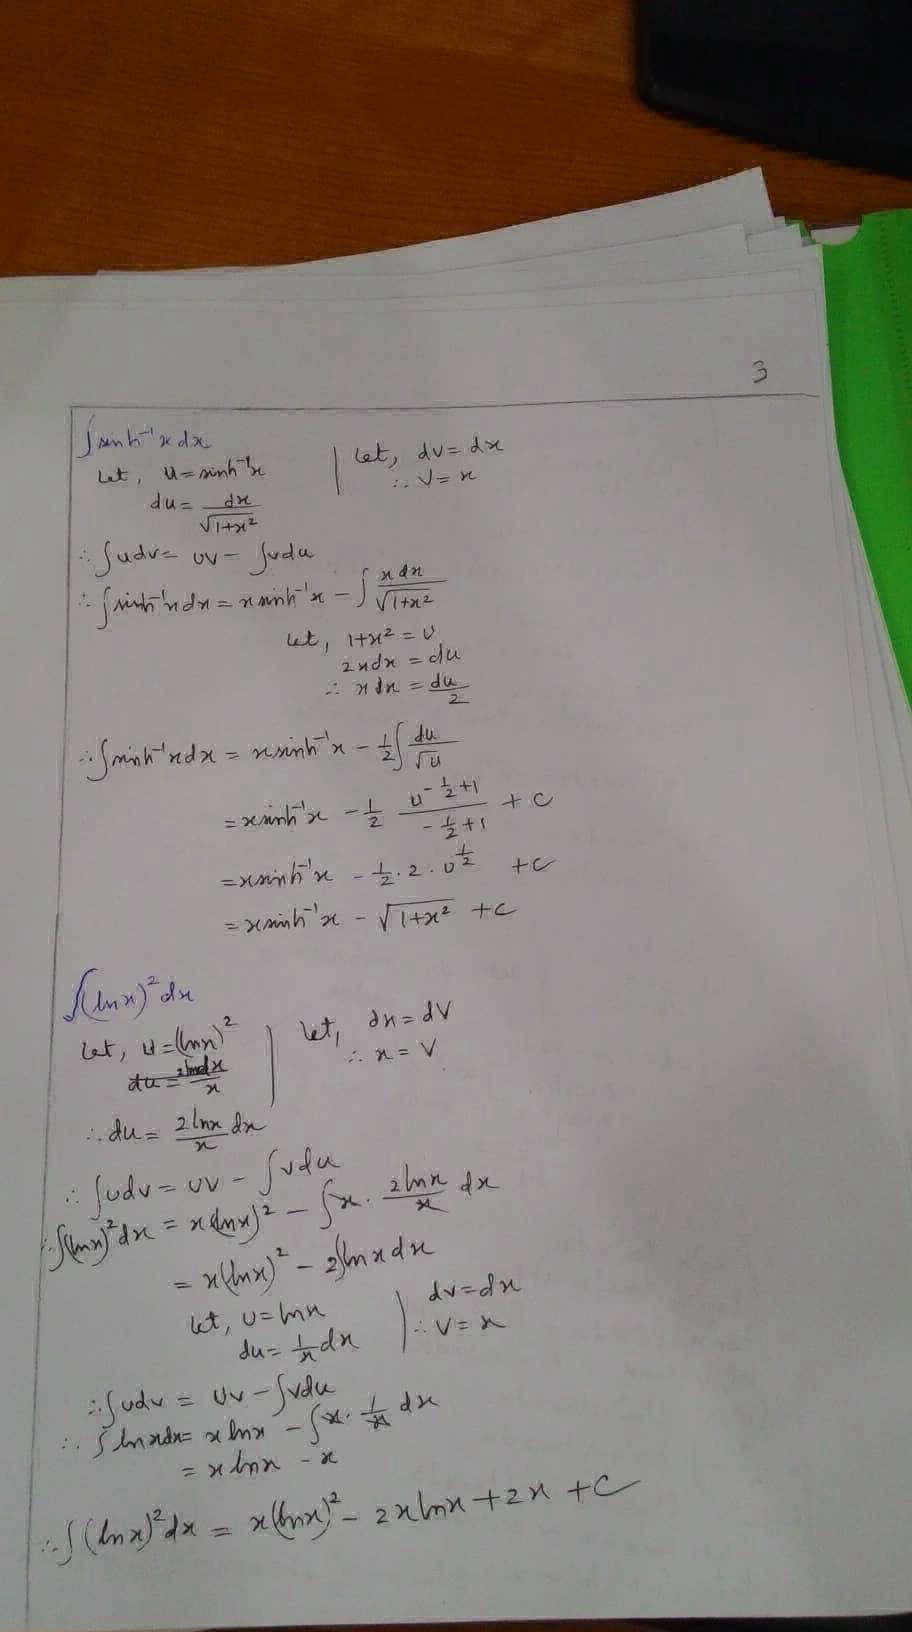 3
∫sinh⁻¹x dx
Let, u = sinh⁻¹x | Let, dv = dx
du = dx/√(1+x²) ∴ v = x
∴ ∫udv = uv − ∫vdu
∴ ∫sinh⁻¹x dx = x sinh⁻¹x − ∫ x dx/√(1+x²)
Let, 1+x² = u
2x dx = du
∴ x dx = du/2
∴ ∫sinh⁻¹x dx = x sinh⁻¹x − 1/2 ∫ du/√u
= x sinh⁻¹x − 1/2 u^(−1/2+1)/(−1/2+1) + c
= x sinh⁻¹x − 1/2 · 2 · u^(1/2) + c
= x sinh⁻¹x − √(1+x²) + c
∫(lnx)² dx
Let, u = (lnx)² | Let, dx = dv
∴ x = v
∴ du = 2lnx/x dx
∴ ∫udv = uv − ∫vdu
∴ ∫(lnx)² dx = x(lnx)² − ∫x · 2lnx/x dx
= x(lnx)² − 2∫lnx dx
Let, u = lnx | dv = dx
du = 1/x dx ∴ v = x
∴ ∫udv = uv − ∫vdu
∴ ∫lnx dx = x lnx − ∫x · 1/x dx
= x lnx − x
∴ ∫(lnx)² dx = x(lnx)² − 2x lnx + 2x + c